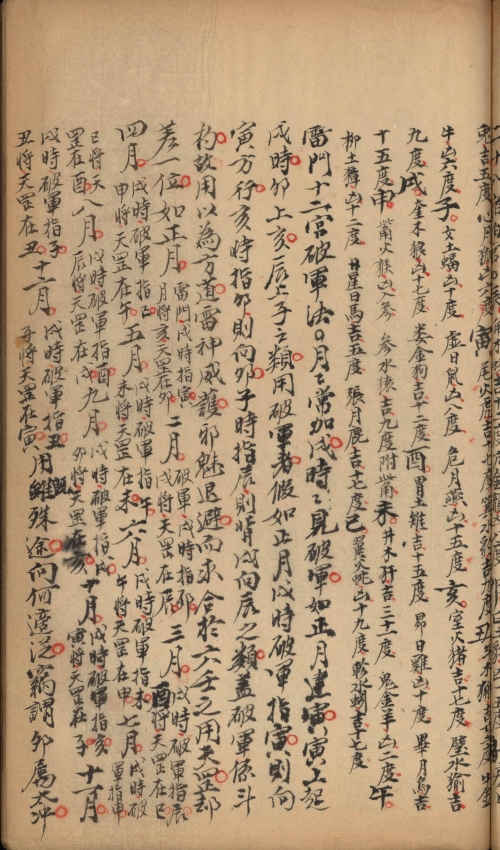 牛凶六度子女土蝠凶十度 虛日鼠凶八度 危月燕凶十五度 亥 室火猪吉十七度 壁水㺄吉
九度戌奎木狼凶十七度 婁金狗吉十二度酉胃土雉吉十五度 昴日雞凶十度 畢月烏吉
十五度申觜火猴凶 參水猿吉九度附觜未井木犴吉三十一度 鬼金羊凶二度午
柳土獐凶十二度 星日馬吉五度 張月鹿吉十七度巳翼火蛇凶十九度 軫水蚓吉十七度
雷門十二宮破軍法○月月常加戌時時見破軍如正月建寅寅上起
戌時卯上亥辰上子之類用破軍者假如正月戌時破軍指寅則向
寅方行亥時指卯則向卯子時指辰則將戌向辰之類蓋破軍係斗
杓故用以為方道雷神威護邪魅退避而求合於六壬之用天罡却
差一位如正月 雷門戌時指寅 月將亥天罡在卯 二月 戌時破軍指卯 戌將天罡在辰 三月 戌時破軍指辰 酉將天罡在巳
四月 戌時破軍指巳 申將天罡在午 五月 戌時破軍指午 未將天罡在未 六月 戌時破軍指未 午將天罡在申 七月 戌時破軍指申
巳將天罡在酉 八月 戌時破軍指酉 辰將天罡在戌 九月 戌時破軍指戌 卯將天罡在亥 十月 戌時破軍指亥 寅將天罡在子 十一月
戌時破軍指子 丑將天罡在丑 十二月 戌時破軍指丑 子將天罡在寅 用雖殊途向何遽泛竊謂卯屬太冲